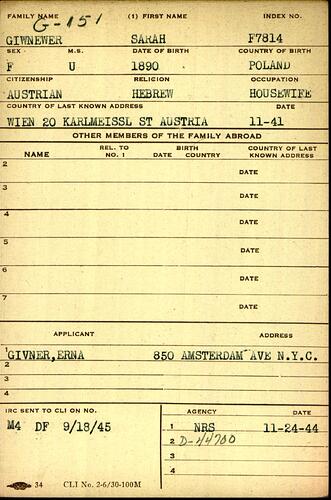 FAMILY NAME (1) FIRST NAME INDEX NO.
G-151
GIWNEWER SARAH F7814
SEX M.S. DATE OF BIRTH COUNTRY OF BIRTH
F U 1890 POLAND
CITIZENSHIP RELIGION OCCUPATION
AUSTRIAN HEBREW HOUSEWIFE
COUNTRY OF LAST KNOWN ADDRESS DATE
WIEN 20 KARLMEISSL ST AUSTRIA 11-41
OTHER MEMBERS OF THE FAMILY ABROAD
NAME REL. TO NO. 1 BIRTH DATE COUNTRY COUNTRY OF LAST KNOWN ADDRESS
2 DATE
3 DATE
4 DATE
5 DATE
6 DATE
7 DATE
APPLICANT ADDRESS
1 GIVNER, ERNA 850 AMSTERDAM AVE N.Y.C.
2
3
4
IRC SENT TO CLI ON NO. AGENCY DATE
M4 DF 9/18/45 1 NRS 11-24-44
2 D-44700
3
4
34 CLI No. 2-6/30-100M